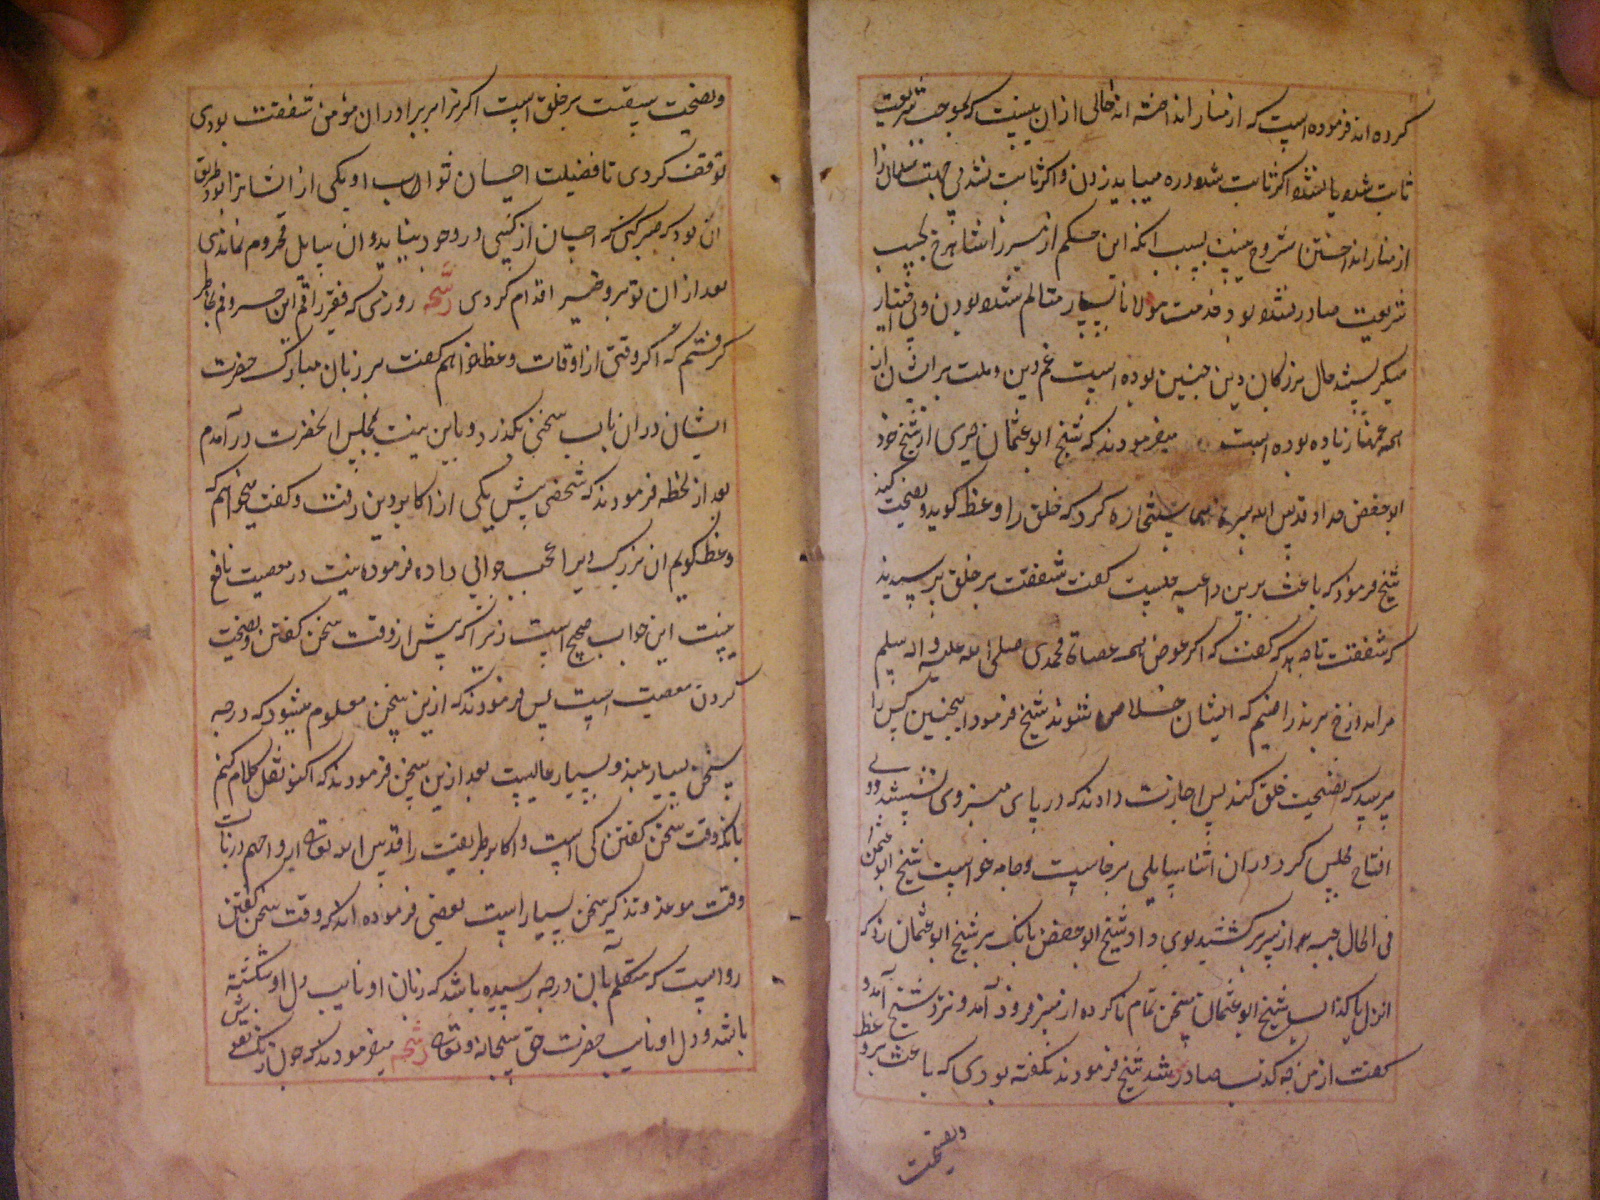 کرده اند فرموده است که از منار انداخته اند خالی ازان نیست که بموجب شریعت
ثابت شده یا نشده اکر ثابت شده دره میباید زدن و اکر ثابت نشد بی جهت مسلمان را
از منار انداختن مشروع نیست بسبب انکه این حکم از میرزا شاهرخ بحسب
شریعت صادر نشده بود خدمت مولانا بسیار متالم شده بودن و بی اختیار
میکریسته حال بزرکان دین چنین بوده است غم دین و ملت بر ایشان از
همه غمها زیاده بوده است میفرمودند که شیخ ابو عثمان حیری از شیخ خود
ابو حفص حداد قدس الله سره استجازه کرد که خلق را وعظ کوید و نصیحت کند
شیخ فرمود که باعث برین داعیه چیست کفت شفقت بر خلق پرسیدند
که شفقت تا چه حد کفت که اکر عوض همه عصاة محمدی صلی الله علیه و اله سلم
مرا بدوزخ برند راضیم که ایشان خلاص شوند شیخ فرمود اینچنین کس را
میرسد که نصیحت خلق کند پس اجازت دادند که در پای منبر وی نشیند و وی
افتتاح مجلس کرد دران اثنا سایلی برخاست و جامه خواست شیخ ابو عثمان
فی الحال جبه از بر کشید بوی داد شیخ ابو حفص بانک بر شیخ ابو عثمان زد که
انزل یا کذاب شیخ ابو عثمان سخن تمام ناکرده از منبر فرود آمد و نزد شیخ آمد و
کفت از من چه کذب صادر شد شیخ فرمودند نکفته بودی که باعث بر وعظ
ونصیحت
ونصیحت شفقت بر خلق است اکر ترا بر برادران مؤمن شفقت بودی
توقف کردی تا فضیلت احسان ثواب او یکی از انشانرا بود طریق
ان بود که صبر کنی که احسان از کسی در وجود بیاید و ان سایل محروم نماندی
بعد ازان تو بر و خیر اقدام کردی رشحه روزی که فقیر راقم این حروف بخاطر
کرفتم که اکر وقتی از اوقات وعظ خواهم کفت بر زبان مبارک حضرت
ایشان دران باب سخنی بکذرد و باین نیت بمجلس انحضرت درآمدم
بعد از لحظه فرمودند که شخصی پیش یکی از اکابر دین رفت و کفت میخواهم که
وعظ کویم ان بزرک ویرا عجب جوابی داده فرموده نیت در معصیت نافع
نیست این جواب صحیح است زیرا که پیش از وقت سخن کفتن و نصیحت
کردن معصیت است پس فرمودند که ازین سخن معلوم میشود که درجه
سخن بسیار بلند و بسیار عالیست بعد ازین سخن فرمودند که اکنون نقل کلام کنم
بانکه وقت سخن کفتن کی است و اکابر طریقت را قدس الله تعالی ارواحهم در باب
وقت موعظه و تذکیر سخن بسیار است بعضی فرموده اند که وقت سخن کفتن
رواست که متکلم بآن درجه رسیده باشد که زبان او نایب دل او شکشته
باشد و دل او نایب حضرت حق سبحانه و تعالی رشحه میفرمودند که چون